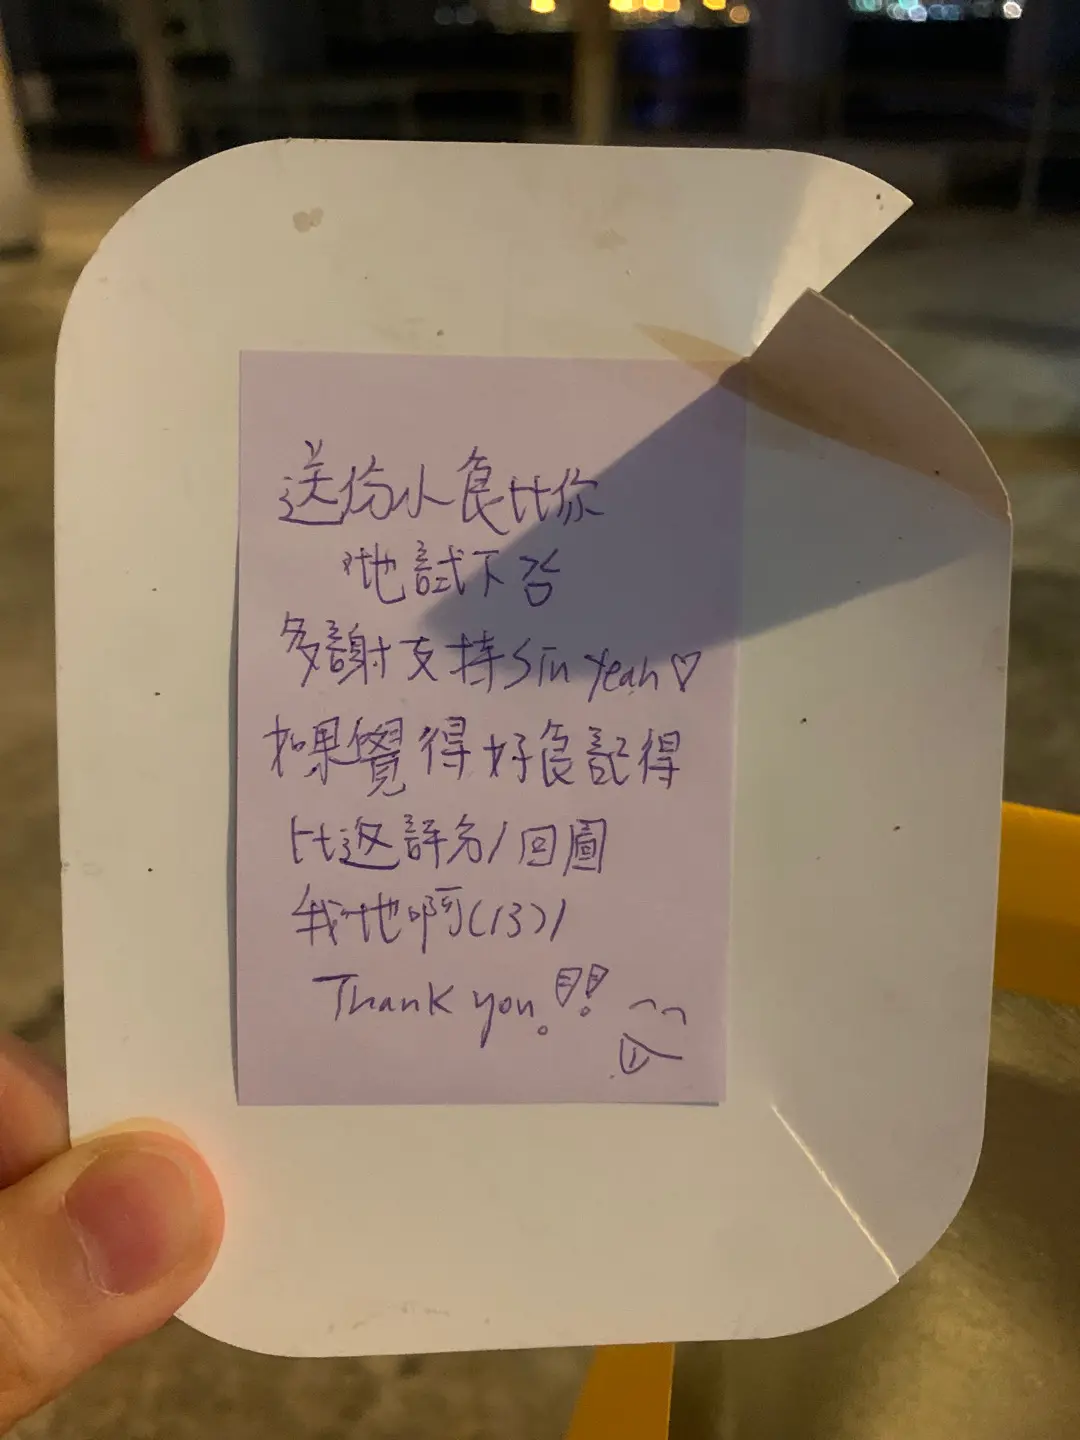 送份小食比你
哋試下呀
多謝支持Sin Yeah♡
如果覺得好食記得
比返評分/回圖
我哋啊(13)/
Thank you!!